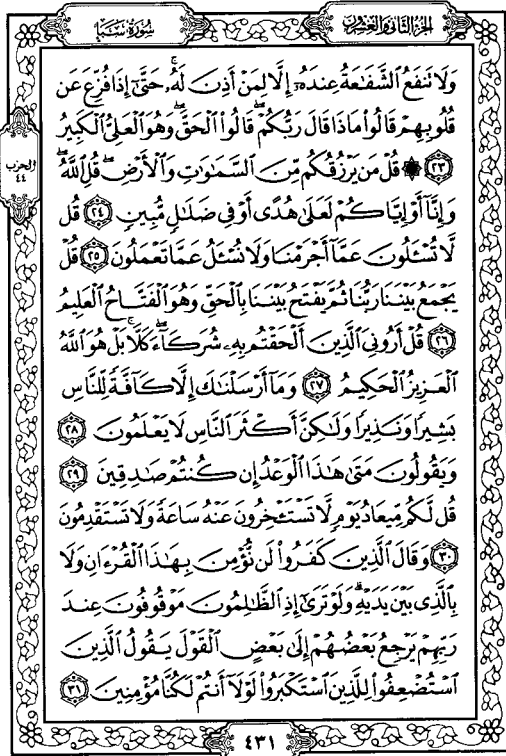 الجزء الثاني والعشرون
سورة سبأ
وَلَا تَنفَعُ ٱلشَّفَٰعَةُ عِندَهُۥٓ إِلَّا لِمَنْ أَذِنَ لَهُۥ ۚ حَتَّىٰٓ إِذَا فُزِّعَ عَن
قُلُوبِهِمْ قَالُوا۟ مَاذَا قَالَ رَبُّكُمْ ۖ قَالُوا۟ ٱلْحَقَّ ۖ وَهُوَ ٱلْعَلِىُّ ٱلْكَبِيرُ
الحزب
٤٤
٢٣ ۞ قُلْ مَن يَرْزُقُكُم مِّنَ ٱلسَّمَٰوَٰتِ وَٱلْأَرْضِ ۖ قُلِ ٱللَّهُ ۖ
وَإِنَّآ أَوْ إِيَّاكُمْ لَعَلَىٰ هُدًى أَوْ فِى ضَلَٰلٍ مُّبِينٍ ٢٤ قُل
لَّا تُسْـَٔلُونَ عَمَّآ أَجْرَمْنَا وَلَا نُسْـَٔلُ عَمَّا تَعْمَلُونَ ٢٥ قُلْ
يَجْمَعُ بَيْنَنَا رَبُّنَا ثُمَّ يَفْتَحُ بَيْنَنَا بِٱلْحَقِّ وَهُوَ ٱلْفَتَّاحُ ٱلْعَلِيمُ
٢٦ قُلْ أَرُونِىَ ٱلَّذِينَ أَلْحَقْتُم بِهِۦ شُرَكَآءَ ۖ كَلَّا ۚ بَلْ هُوَ ٱللَّهُ
ٱلْعَزِيزُ ٱلْحَكِيمُ ٢٧ وَمَآ أَرْسَلْنَٰكَ إِلَّا كَآفَّةً لِّلنَّاسِ
بَشِيرًا وَنَذِيرًا وَلَٰكِنَّ أَكْثَرَ ٱلنَّاسِ لَا يَعْلَمُونَ ٢٨
وَيَقُولُونَ مَتَىٰ هَٰذَا ٱلْوَعْدُ إِن كُنتُمْ صَٰدِقِينَ ٢٩
قُل لَّكُم مِّيعَادُ يَوْمٍ لَّا تَسْتَـْٔخِرُونَ عَنْهُ سَاعَةً وَلَا تَسْتَقْدِمُونَ
٣٠ وَقَالَ ٱلَّذِينَ كَفَرُوا۟ لَن نُّؤْمِنَ بِهَٰذَا ٱلْقُرْءَانِ وَلَا
بِٱلَّذِى بَيْنَ يَدَيْهِ ۗ وَلَوْ تَرَىٰٓ إِذِ ٱلظَّٰلِمُونَ مَوْقُوفُونَ عِندَ
رَبِّهِمْ يَرْجِعُ بَعْضُهُمْ إِلَىٰ بَعْضٍ ٱلْقَوْلَ يَقُولُ ٱلَّذِينَ
ٱسْتُضْعِفُوا۟ لِلَّذِينَ ٱسْتَكْبَرُوا۟ لَوْلَآ أَنتُمْ لَكُنَّا مُؤْمِنِينَ ٣١
٤٣١